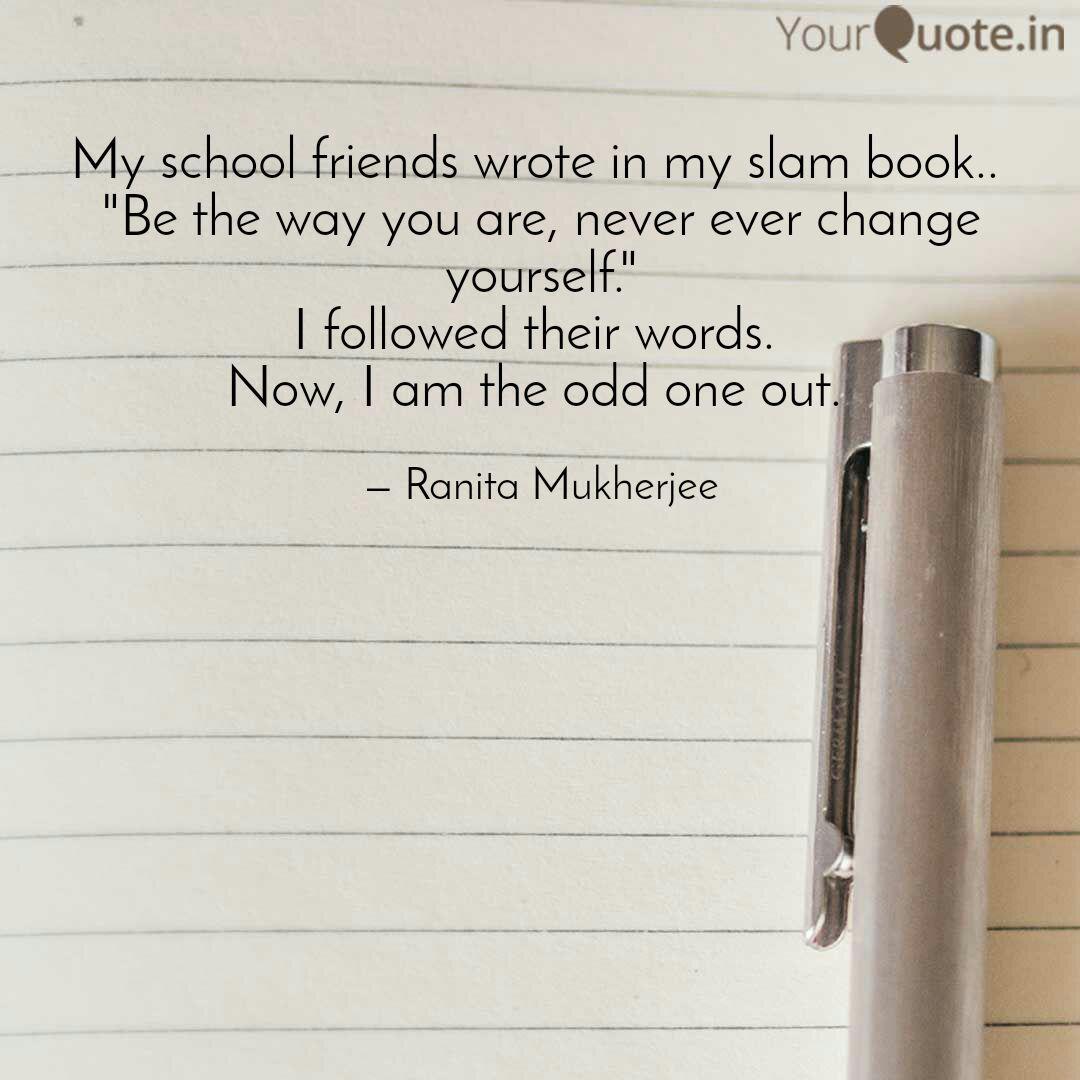 YourQuote.in
My school friends wrote in my slam book..
"Be the way you are, never ever change
yourself."
I followed their words.
Now, I am the odd one out.
– Ranita Mukherjee
GERMANY